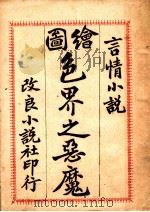 言情小說
繪圖
色界之惡魔
改良小說社印行